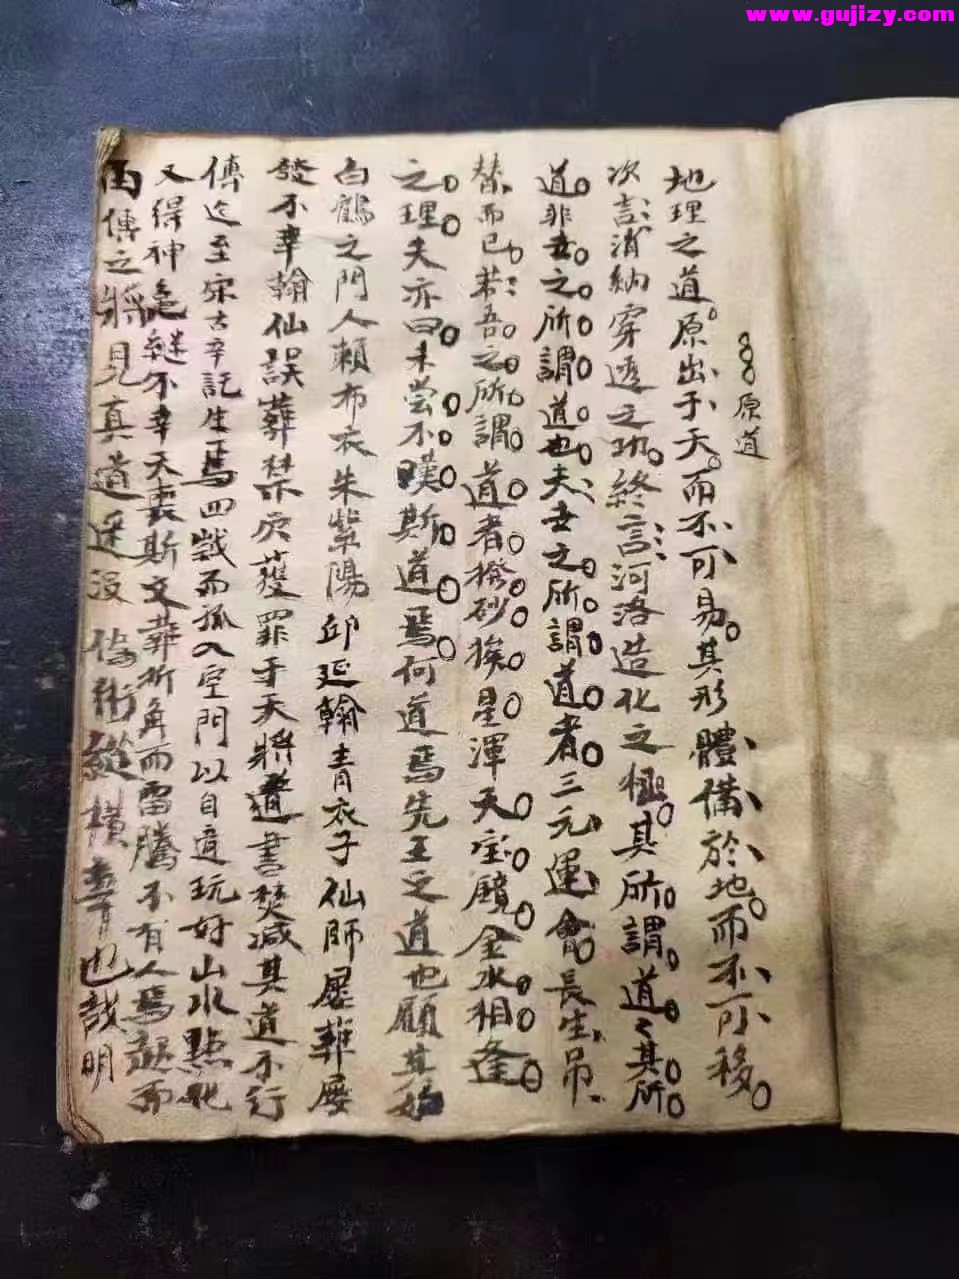 www.gujizy.com
原道
地理之道原出于天而不可易其形體備於地而不可移
次言消納穿透之功終言河洛造化之極其所謂道〻其所
道非世之所謂道也夫世之所謂道者三元運會長生吊
替而已若吾之所謂道者撥砂挨星渾天宝鏡金水相逢
之理夫亦曰未尝不嘆斯道焉何道焉先王之道也顧其始
白鶴之門人賴布衣朱紫陽邱延翰青衣子仙師屡葬屡
發不幸翰仙誤葬禁穴獲罪于天將道書焚滅其道不行
傳迄至宋古辛託生焉四歲而孤入空門以自適玩好山水點化
又得神仙不幸天喪斯文葬折角而雷騰不有人焉起而
而傳之將見真道逐沒偽術縱橫也哉明